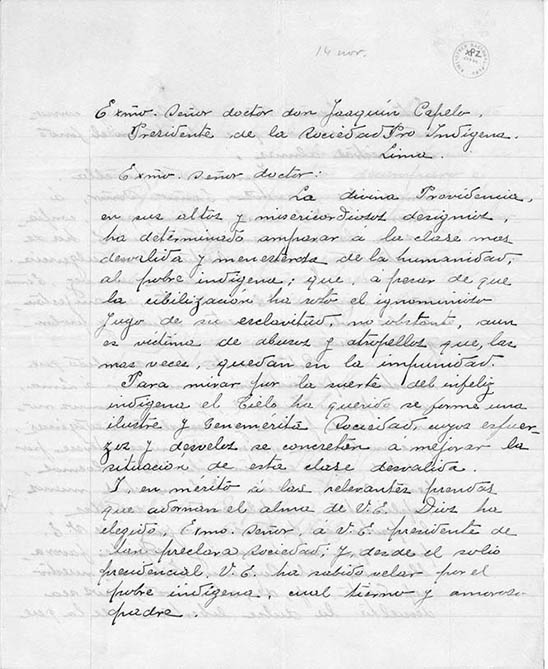 14 nov.
Exmo. Señor doctor don Joaquín Capelo.
Presidente de la Sociedad Pro Indígena.
Lima.
Exmo. Señor doctor:
La divina Providencia,
en sus altos y misericordiosos designios,
ha determinado amparar á la clase mas
desvalida y menesteroza de la humanidad,
al pobre indígena; que, á pesar de que
la cibilización ha roto el ignominioso
yugo de su esclavitud, no obstante, aun
es víctima de abusos y atropellos que, las
mas veces, quedan en la impunidad.
Para mirar por la suerte del infeliz
indígena el Cielo ha querido se forme una
ilustre y benemérita Sociedad, cuyos esfuer-
zos y desvelos se concretan a mejorar la
situación de esta clase desvalida.
I, en mérito á las relevantes prendas
que adornan el alma de V.E. Dios ha
elegido, Exmo. Señor, á V.E. presidente de
tan preclara Sociedad; y, desde el solio
presidencial, V.E. ha sabido velar por el
pobre indígena, cual tierno y amoroso
padre.